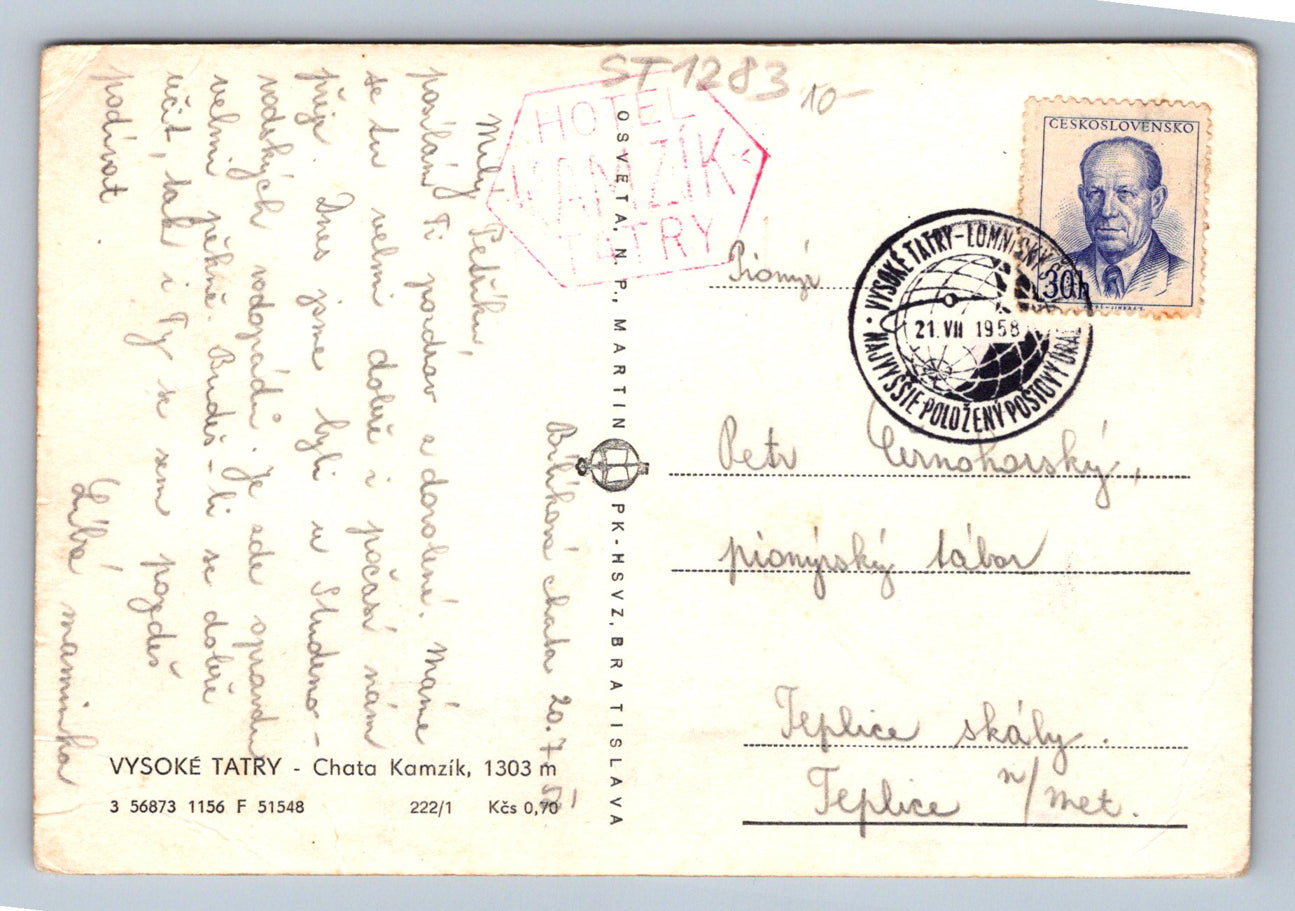 ST 1283
10-
HOTEL
KAMZÍK
TATRY
Bilíkova chata 20. 7.
Milý Petříku,
posílám Ti pozdrav z dovolené. Máme
se tu velmi dobře i počasí nám
přeje. Dnes jsme byli u Studeno-
vodských vodopádů. Je zde opravdu
velmi pěkně. Budeš-li se dobře
učit, tak i Ty se sem pojedeš
podívat
Líbá maminka
VYSOKÉ TATRY - Chata Kamzík, 1303 m
3 56873 1156 F 51548 222/1 Kčs 0,70
OSVETA, N. P., MARTIN PK-HSVZ, BRATISLAVA
ČESKOSLOVENSKO
30h
VYSOKÉ TATRY-LOMNICKÝ
21. VII 1958
NAJVYŠŠIE POLOŽENÝ POŠTOVÝ ÚRAD
Pionýr
Petr Černohorský,
pionýrský tábor
Teplice skály.
Teplice n/Met.